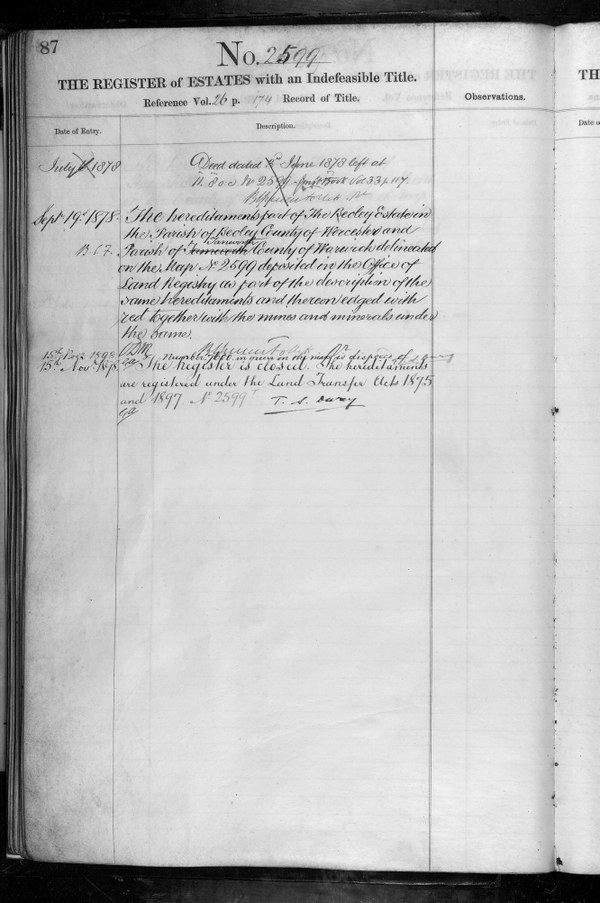 87
No. 2599
THE REGISTER of ESTATES with an Indefeasible Title.
Reference Vol. 26 p. 174 Record of Title.
Observations.
Date of Entry.
Description.
July 1878
Deed dated June 1878 left at
No 2599 Vol 33 p 117.
Sept 19th 1878.
The hereditaments part of The Beoley Estate in
the Parish of Beoley County of Worcester and
B. C. 7.
Parish of Tanworth County of Warwick delineated
on the Map No 2599 deposited in the Office of
Land Registry as part of the description of the
same hereditaments and thereon edged with
red together with the mines and minerals under
the same.
15th Nov. 1898
The Register is closed. The hereditaments
are registered under the Land Transfer Acts 1875
and 1897 No 2599
TH
Date o